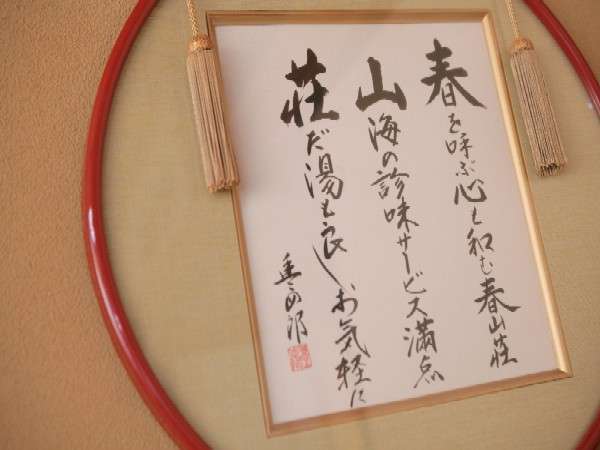 春を呼ぶ心も和む春山荘
山海の診味サービス満点
荘だ湯も良しお気軽に